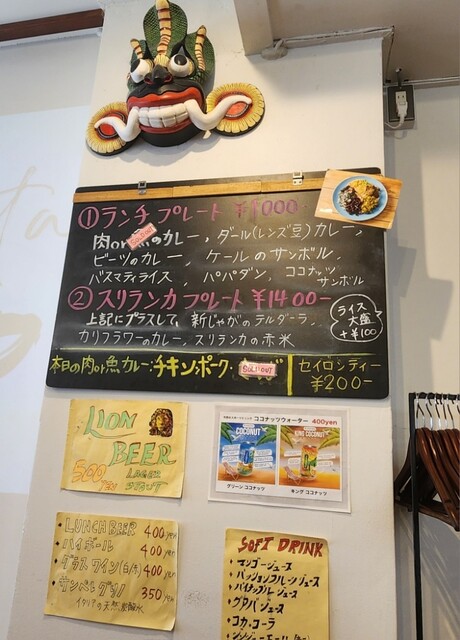 ①ランチプレート ¥1000-
肉or魚のカレー、ダール(レンズ豆)カレー、
ビーツのカレー、ケールのサンボル、
バスマティライス、パパダン、ココナッツサンボル
②スリランカプレート ¥1400-
上記にプラスして、新じゃがのテルダーラ、
カリフラワーのカレー、スリランカの赤米
ライス
大盛
+¥100
本日の肉or魚カレー:チキン・ポーク・
SOLD OUT
セイロンティー
¥200-
LION
BEER
LAGER
500
YEN
ココナッツウォーター 400yen
COCONUT
KING COCONUT
グリーン ココナッツ
キング ココナッツ
・LUNCH BEER 400yen
・ハイボール 400yen
・グラスワイン(白/赤) 400yen
・サンペレグリノ 350yen
イタリアの天然炭酸水
SOFT DRINK
・マンゴージュース
・パッションフルーツジュース
・パイナップルジュース
・グアバジュース
・コカ・コーラ